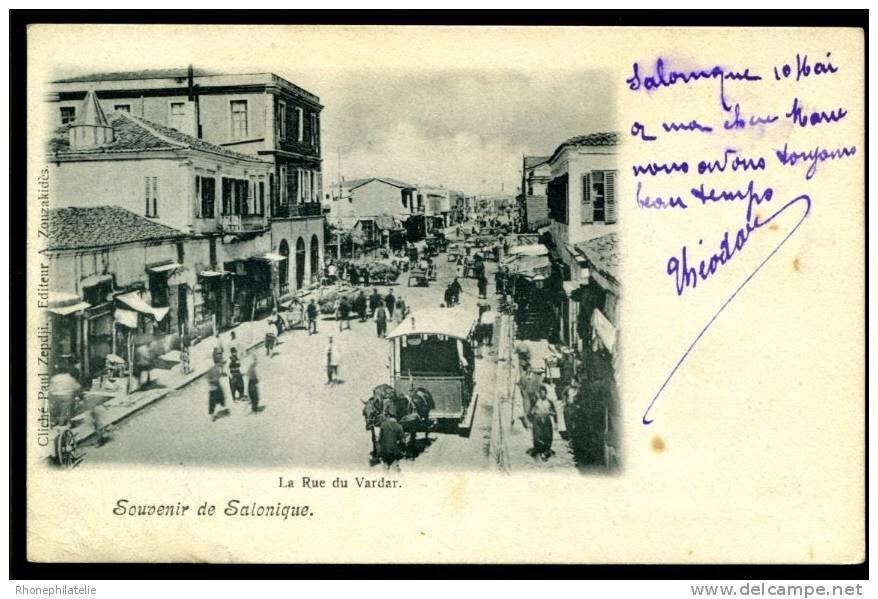 Salonique 10 Mai
ma chère Marie
nous avons toujours
beau temps
Théodore
Cliché Paul Zepdji. Editeur A. Zouzakidès.
La Rue du Vardar.
Souvenir de Salonique.
Rhonephilatelie
www.delcampe.net